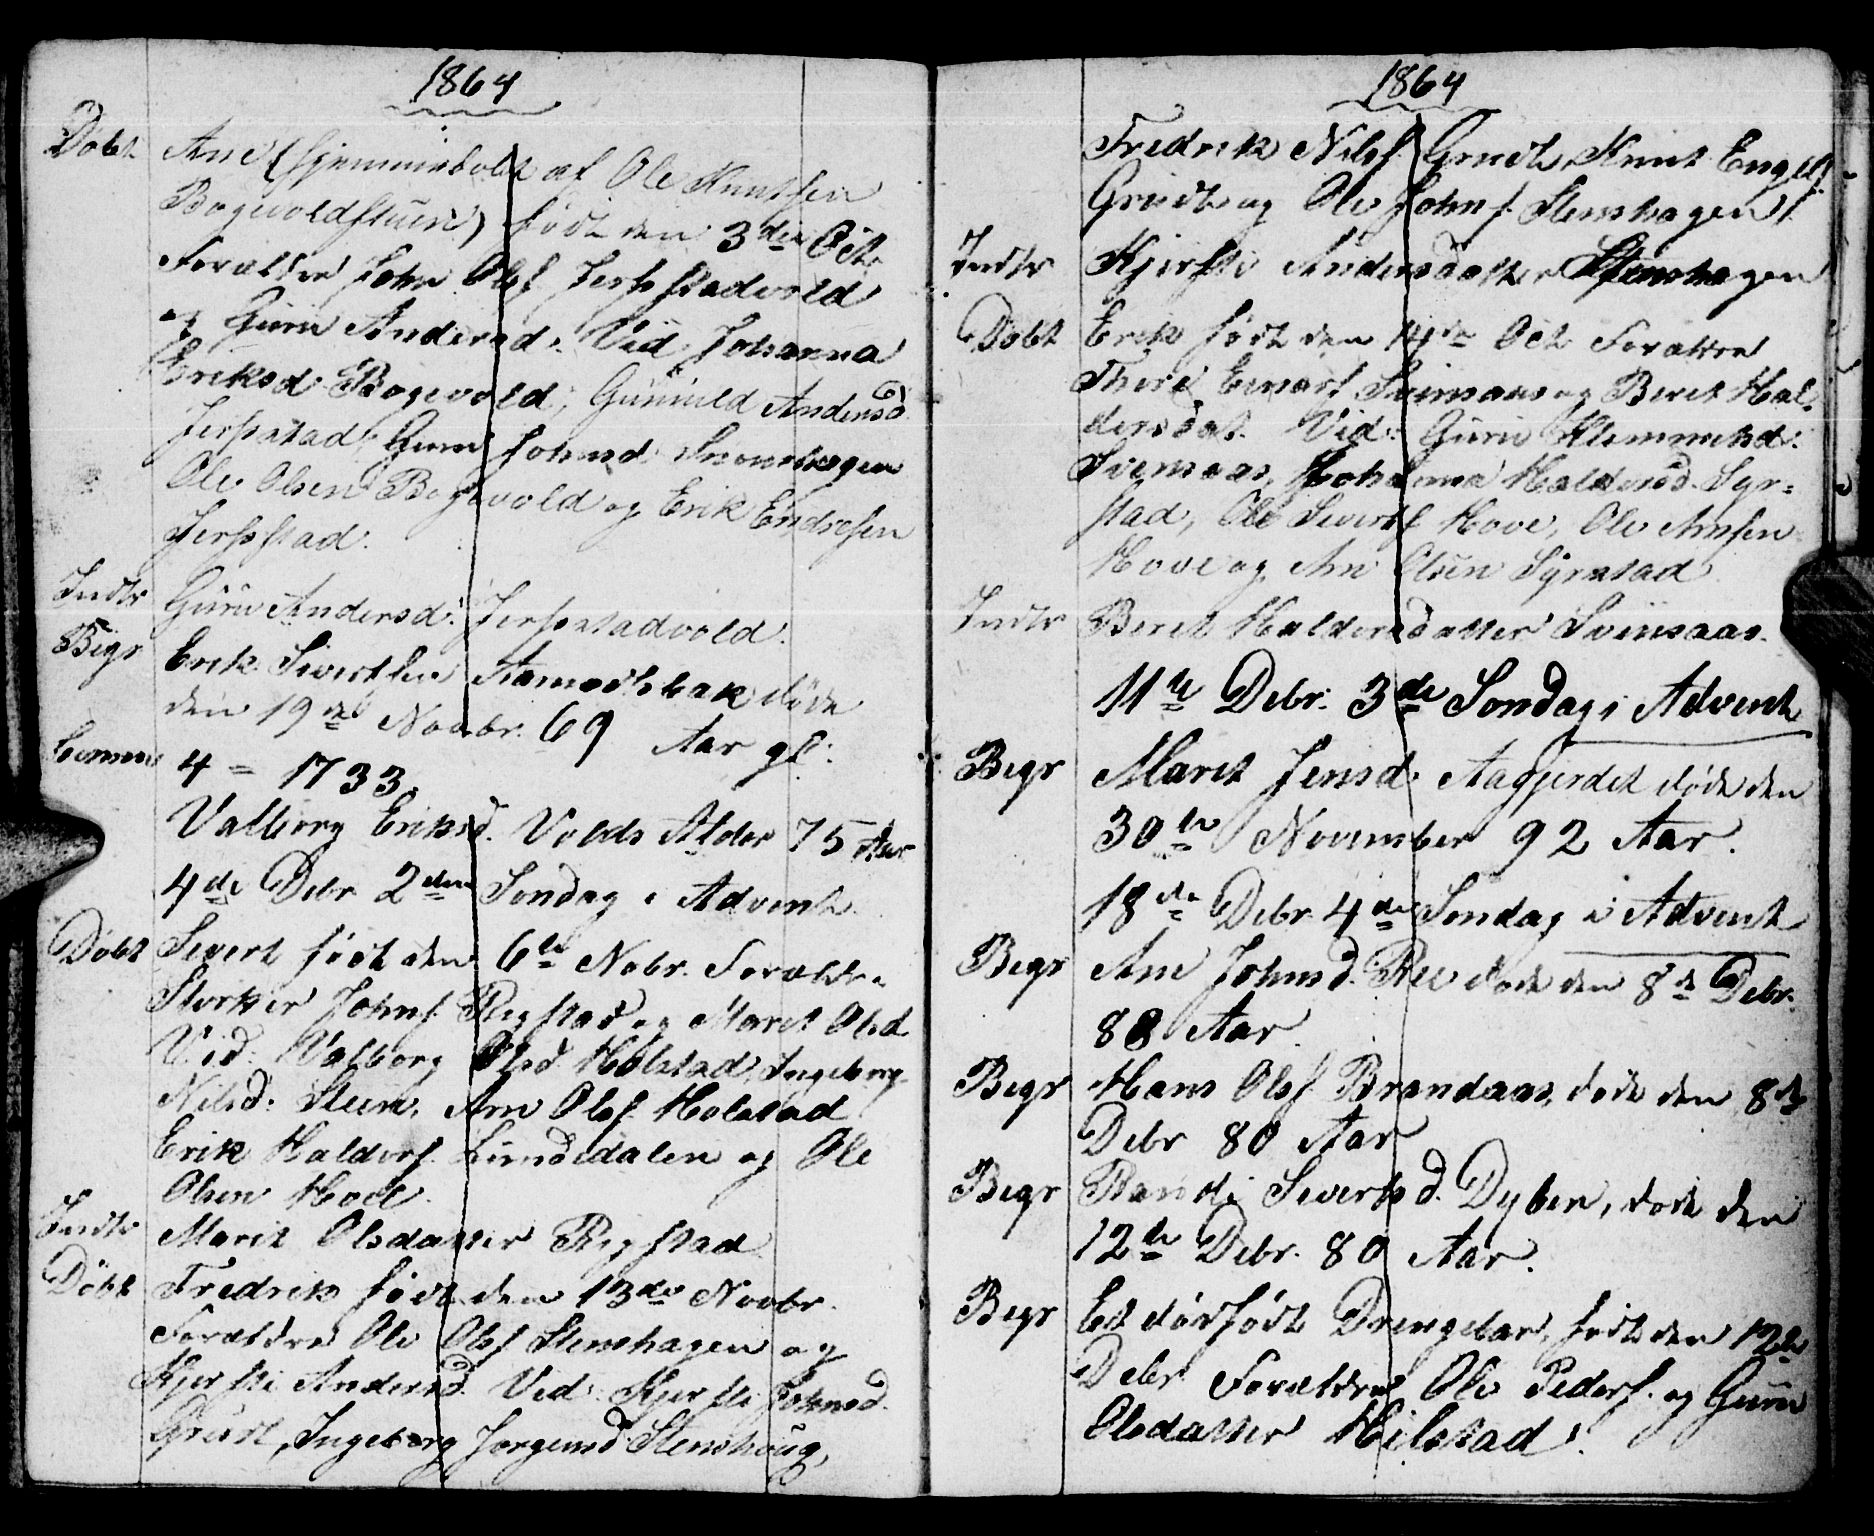 1864
Döbt Ane (hjemmedöbt af Ole Knutsen
Bogevoldstuen) födt den 3die Oct.
Forældre John Olsf Jerpstadvold
og Guru Andersd. Vid. Johanna
Eriksd. Bogevold, Gunnild Andersd
Jerpstad, Guru Johnsd
Ole Olsen Bogevold og Erik Endresen
Jerpstad.
Indtr Guru Andersd. Jerpstadvold.
Begr Erik Sivertsen Aamodtsbak döde
den 19de Novbr. 69 Aar gl.
Comm 4 = 1733.
Valborg Eriksd. Volds Alder 75 Aar
4de Debr 2den Söndag i Advent.
Döbt Sivert födt den 6te Nobr. Forældre
Storker Johnf. Rigstad og Marit Olsd
Vid. Valborg Olsd Holstad, Ingeborg
Nilsd. Steen, Arn Olsf. Holstad
Erik Halders. Lundedalen og Ole
Olsen Hoel.
Indtr Marit Olsdatter Rigstad
Döbt Fredrik födt den 13de Novbr.
Forældre Ole Olsf Stenshagen og
Kjersti Andersd. Vid. Kjersti Johnsd.
Grudt, Ingeborg Jorgensd Stenshoug,
1864
Fredrik Nilsf. Grudt, Knut Engelf
Grudt og Ole Johnf. Stenshagen
Indtr Kjersti Andersdatter Stenshagen
Döbt Erik födt den 14de Oct Forældre
Thore Einarf. Svinsaas og Beret Hal-
dersdat. Vid. Guru
Svinsaas, Johanna Haldersd. Syr-
stad, Ole Sivertf Hove, Ole Arnsen
Hove og Arn Olsen Syrstad
Indtr Beret Haldersdatter Svinsaas.
11te Debr. 3de Söndag i Advent
Begr Marit Jensd. Aagjerdet döde den
30te November 92 Aar.
18de Debr. 4de Söndag i Advent
Begr Ane Johnsd. Ree döde den 8de Debr.
88 Aar.
Begr Hans Olsf Brandaas, döde den 8de
Debr 80 Aar
Begr Randi Sivertsd. Dyben, döde den
12te Debr. 80 Aar.
Begr Et dödfödt Drengebar, födt den 12te
Debr. Forældre Ole Pederf. og Guru
Olsdatter Hilstad.